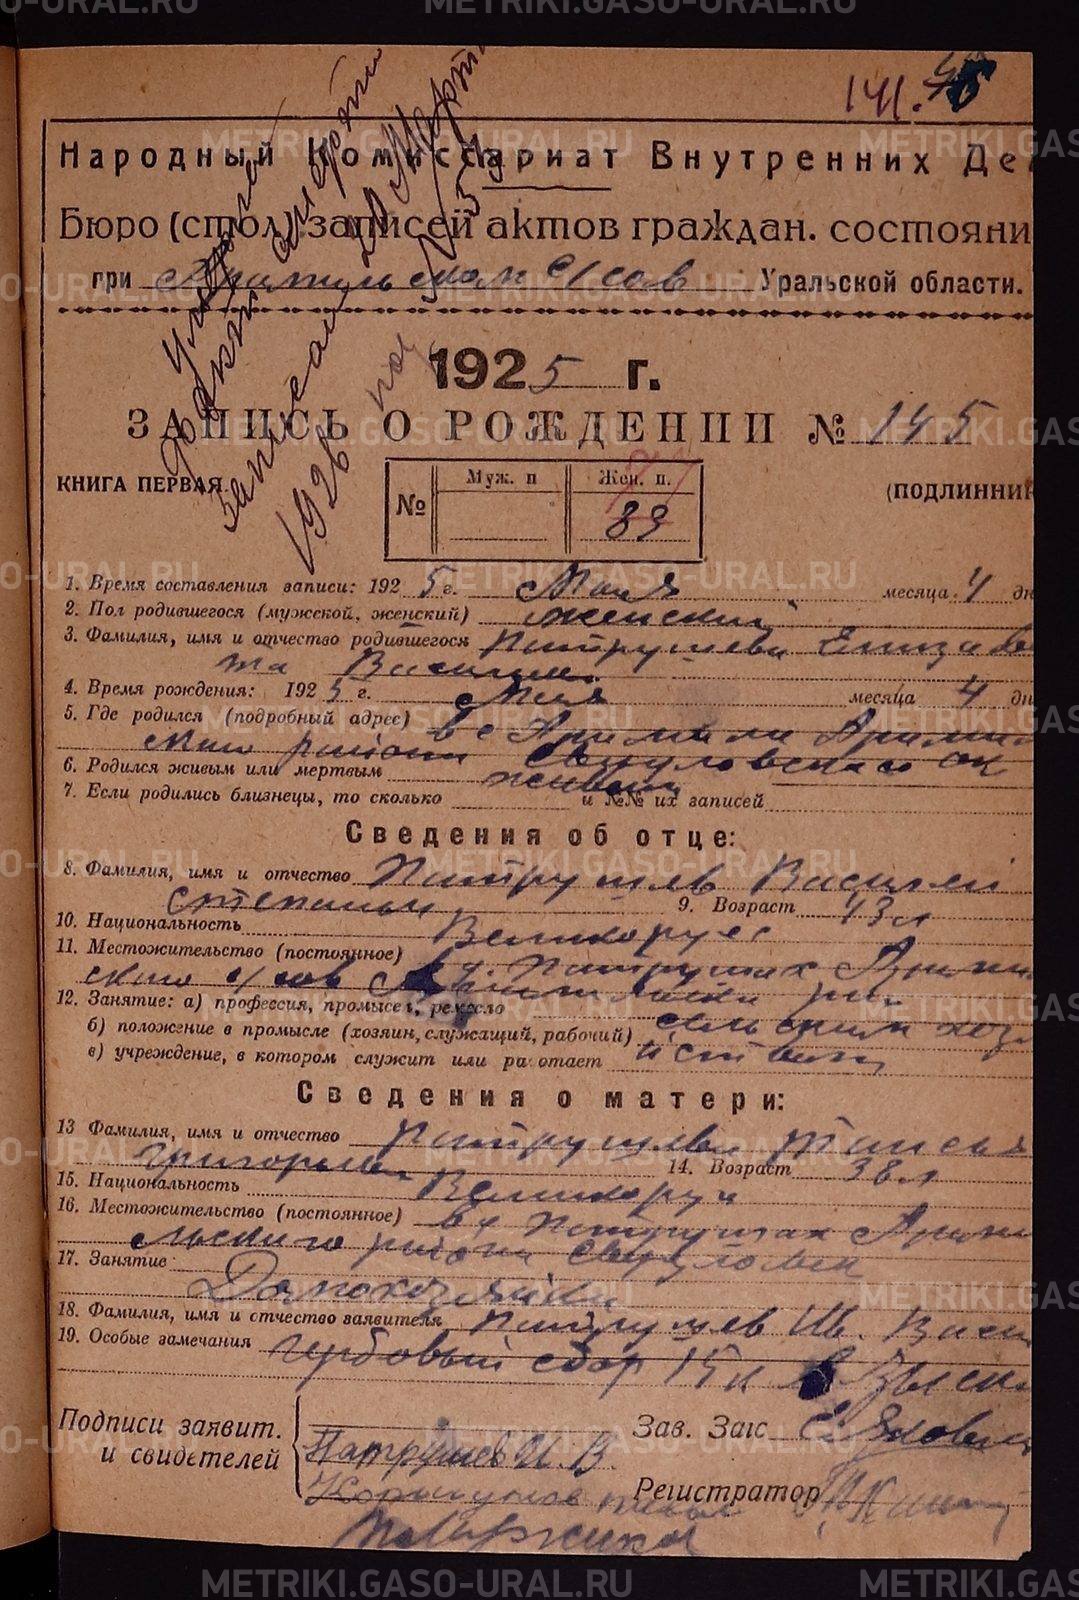 141. 46
Народный Комиссариат Внутренних Дел
Бюро (стол) записей актов граждан. состояни
при Арамильском с/сов Уральской области.
Умерла
запись
1926 год
1925 г.
ЗАПИСЬ О РОЖДЕНИИ № 145
КНИГА ПЕРВАЯ.
(ПОДЛИННИК
№ Муж. п Жен. п.
89
1. Время составления записи: 1925 г. Мая месяца 4 дн
2. Пол родившегося (мужской, женский) женский
3. Фамилия, имя и отчество родившегося Патрушева Елизаве
та Василье
4. Время рождения: 1925 г. Мая месяца 4 дн
5. Где родился (подробный адрес) в с Арамили Арамил
ского района Свердловского ок
6. Родился живым или мертвым живым
7. Если родились близнецы, то сколько и №№ их записей
Сведения об отце:
8. Фамилия, имя и отчество Патрушев Василий
Степаныч 9. Возраст 43 л
10. Национальность Великорус
11. Местожительство (постоянное) в д. Патрушах Арами
ского с/сов
12. Занятие: а) профессия, промысел, ремесло
б) положение в промысле (хозяин, служащий, рабочий) сельским хозя
в) учреждение, в котором служит или работает йством
Сведения о матери:
13 Фамилия, имя и отчество Патрушева Таисья
Григорьев 14. Возраст 38 л
15. Национальность Великорус
16. Местожительство (постоянное) в д Патрушах Арами
льского района Свердловск
17. Занятие
Домохозяйка
18. Фамилия, имя и отчество заявителя Патрушев Ив. Васи
19. Особые замечания гербовый сбор 15 к взыск
Подписи заявит.
и свидетелей
Патрушев И. В.
Зав. Загс
Регистратор
METRIKI.GASO-URAL.RU